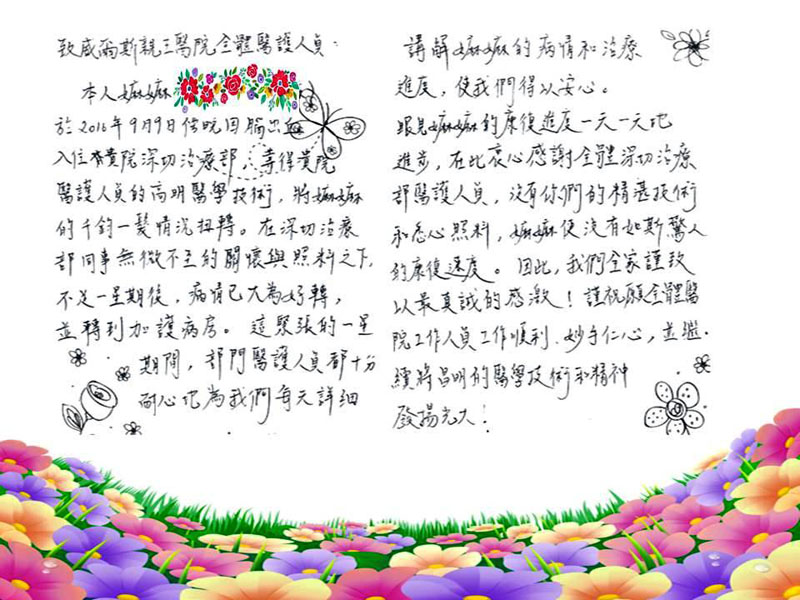 致威爾斯親王醫院全體醫護人員：
本人嫲嫲
於2016年9月9日傍晚因腦出血
入住貴院深切治療部，幸得貴院
醫護人員的高明醫學技術，將嫲嫲
的千鈞一髮情況扭轉。在深切治療
部同事無微不至的關懷與照料之下，
不足一星期後，病情已大為好轉，
並轉到加護病房。這緊張的一星
期間，部門醫護人員都十分
耐心地為我們每天詳細
講解嫲嫲的病情和治療
進度，使我們得以安心。
眼見嫲嫲的康復進度一天一天地
進步，在此衷心感謝全體深切治療
部醫護人員，沒有你們的精湛技術
和悉心照料，嫲嫲便沒有如斯驚人
的康復速度。因此，我們全家謹致
以最真誠的感激！謹祝願全體醫
院工作人員工作順利、妙手仁心，並繼
續將昌明的醫學技術和精神
發揚光大！